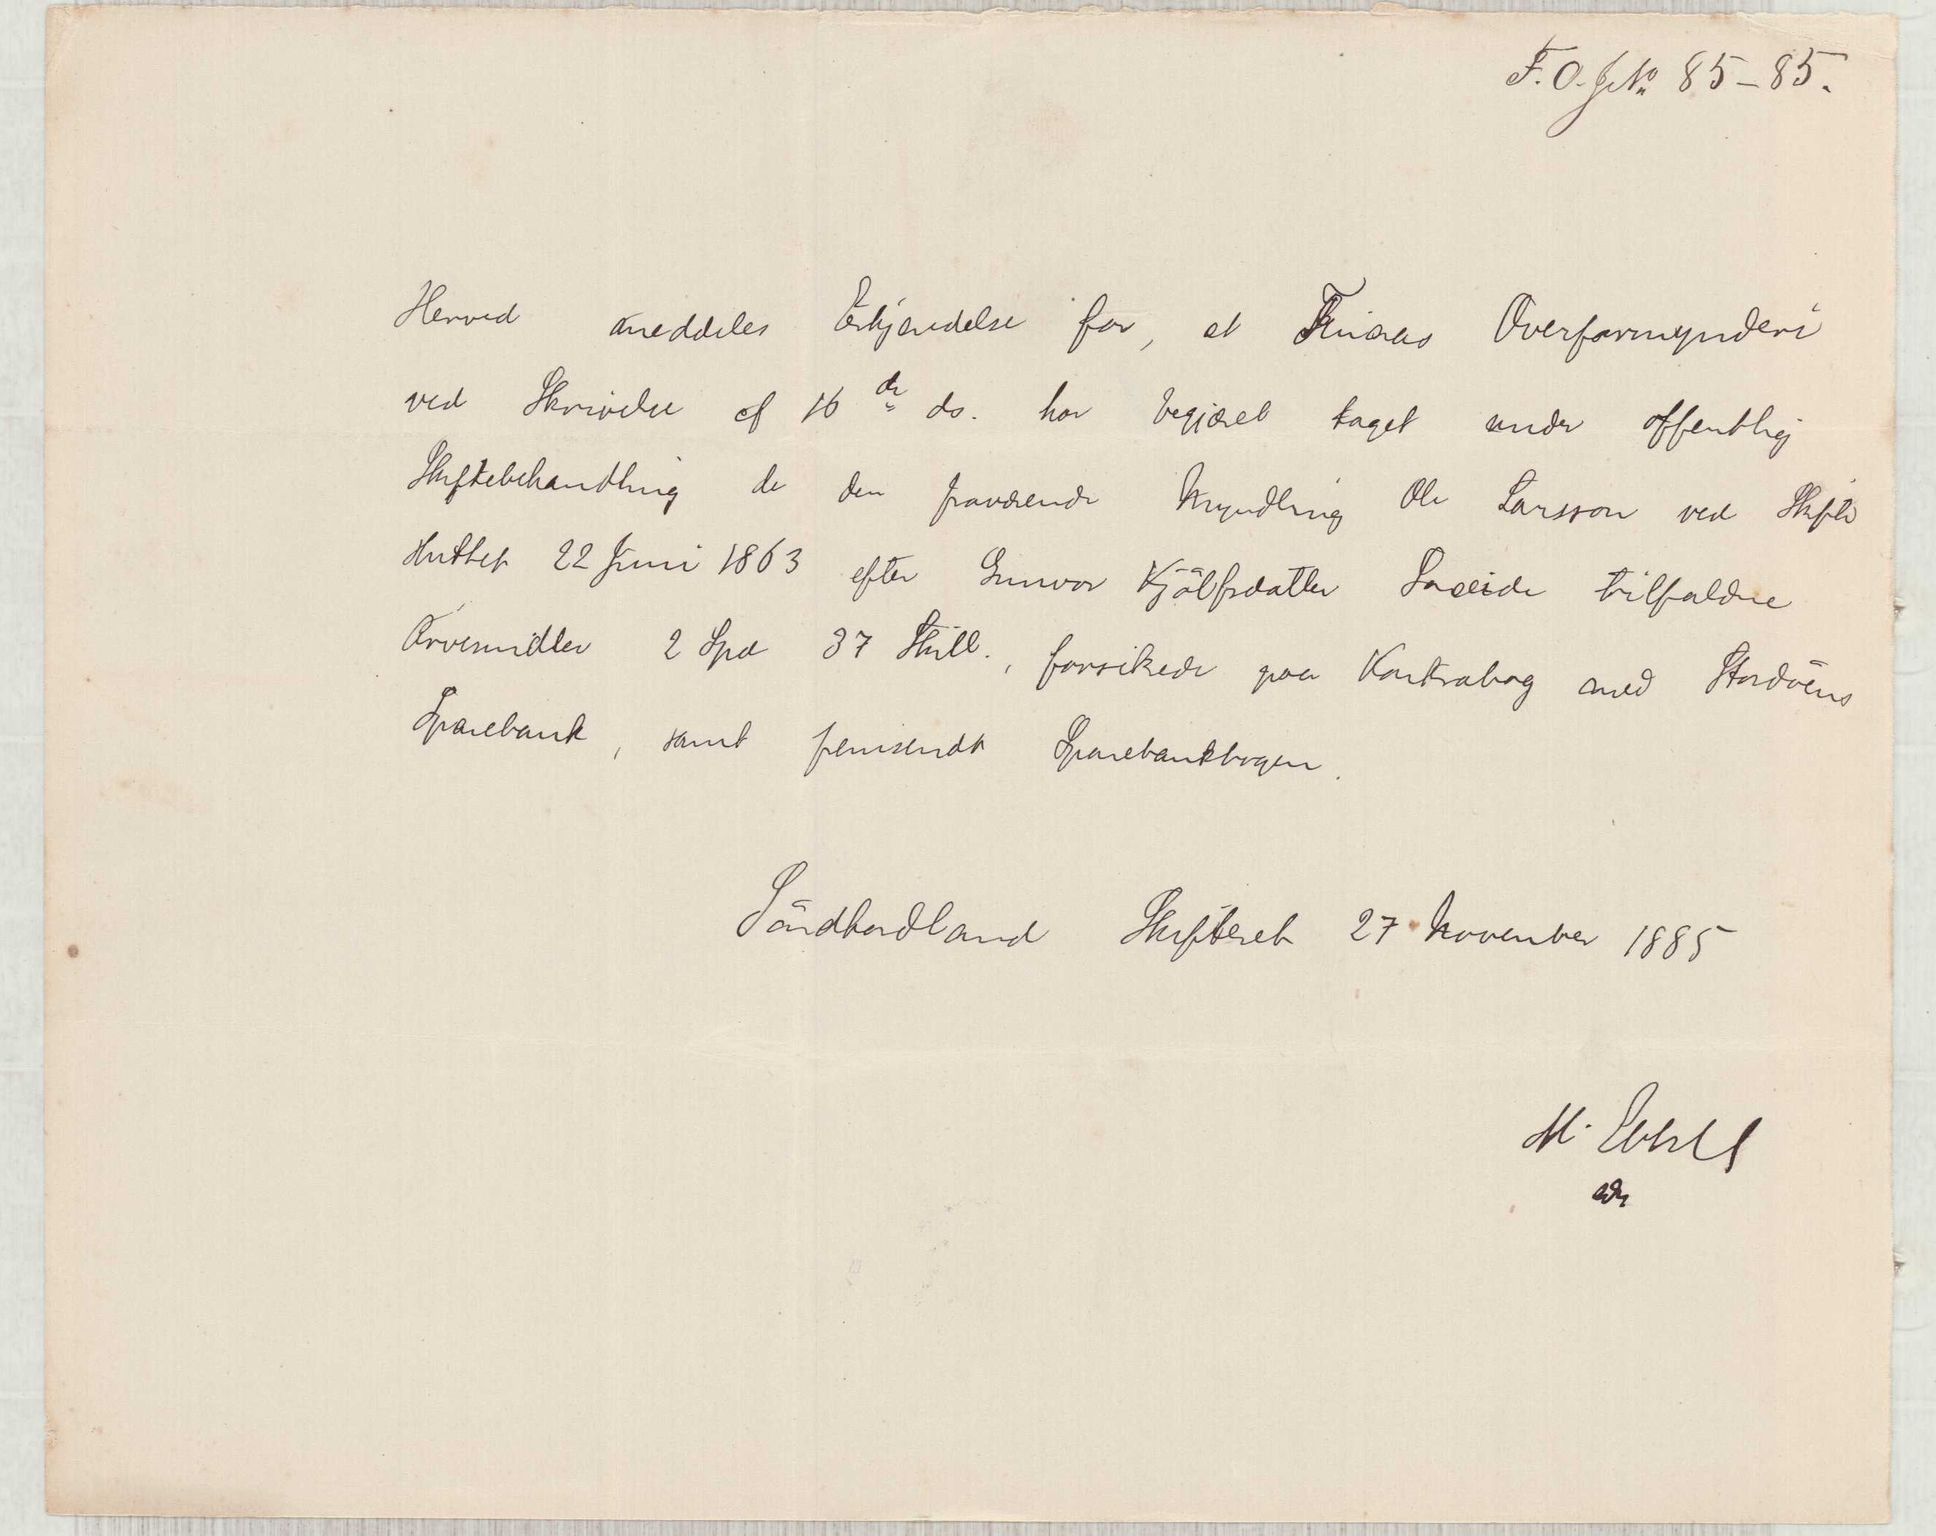 F. O. J No 85–85.
Herved meddeles Erkjendelse for, at Finaas Overformynderi
ved Skrivelse af 16de ds. har begjæret taget under offentlig
Skiftebehandling de den fraværende Myndling Ole Larsson ved Skifte
sluttet 22 Juni 1863 efter Gunvor Kjölfsdatter tilfaldne
Arvesmidler 2 Spd 37 Skill., forsikrede paa Kontrabog med Stordöens
Sparebank, samt fremsendt Sparebankbogen.
Söndhordland Skifteret 27 November 1885
M.